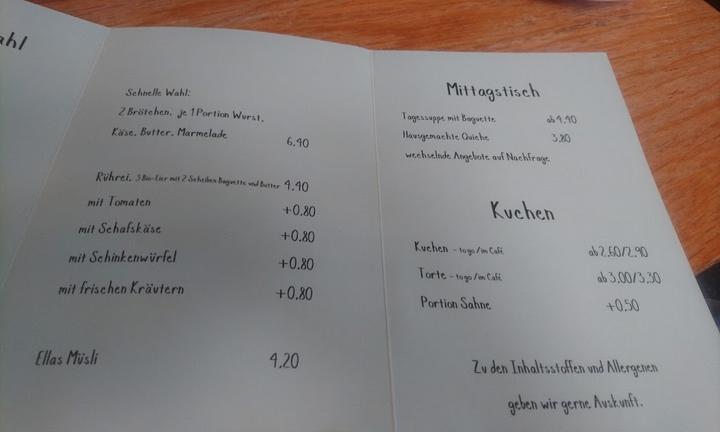 ahl
Schnelle Wahl:
2 Brötchen, je 1 Portion Wurst,
Käse, Butter, Marmelade 6.90
Rührei, 3 Bio-Eier mit 2 Scheiben Baguette und Butter 4.90
mit Tomaten +0.80
mit Schafskäse +0.80
mit Schinkenwürfel +0.80
mit frischen Kräutern +0.80
Ellas Müsli 4.20
Mittagstisch
Tagessuppe mit Baguette ab 4.90
Hausgemachte Quiche 3.80
wechselnde Angebote auf Nachfrage
Kuchen
Kuchen - to go / im Café ab 2.60/2.90
Torte - to go / im Café ab 3.00/3.30
Portion Sahne +0.50
Zu den Inhaltsstoffen und Allergenen
geben wir gerne Auskunft.